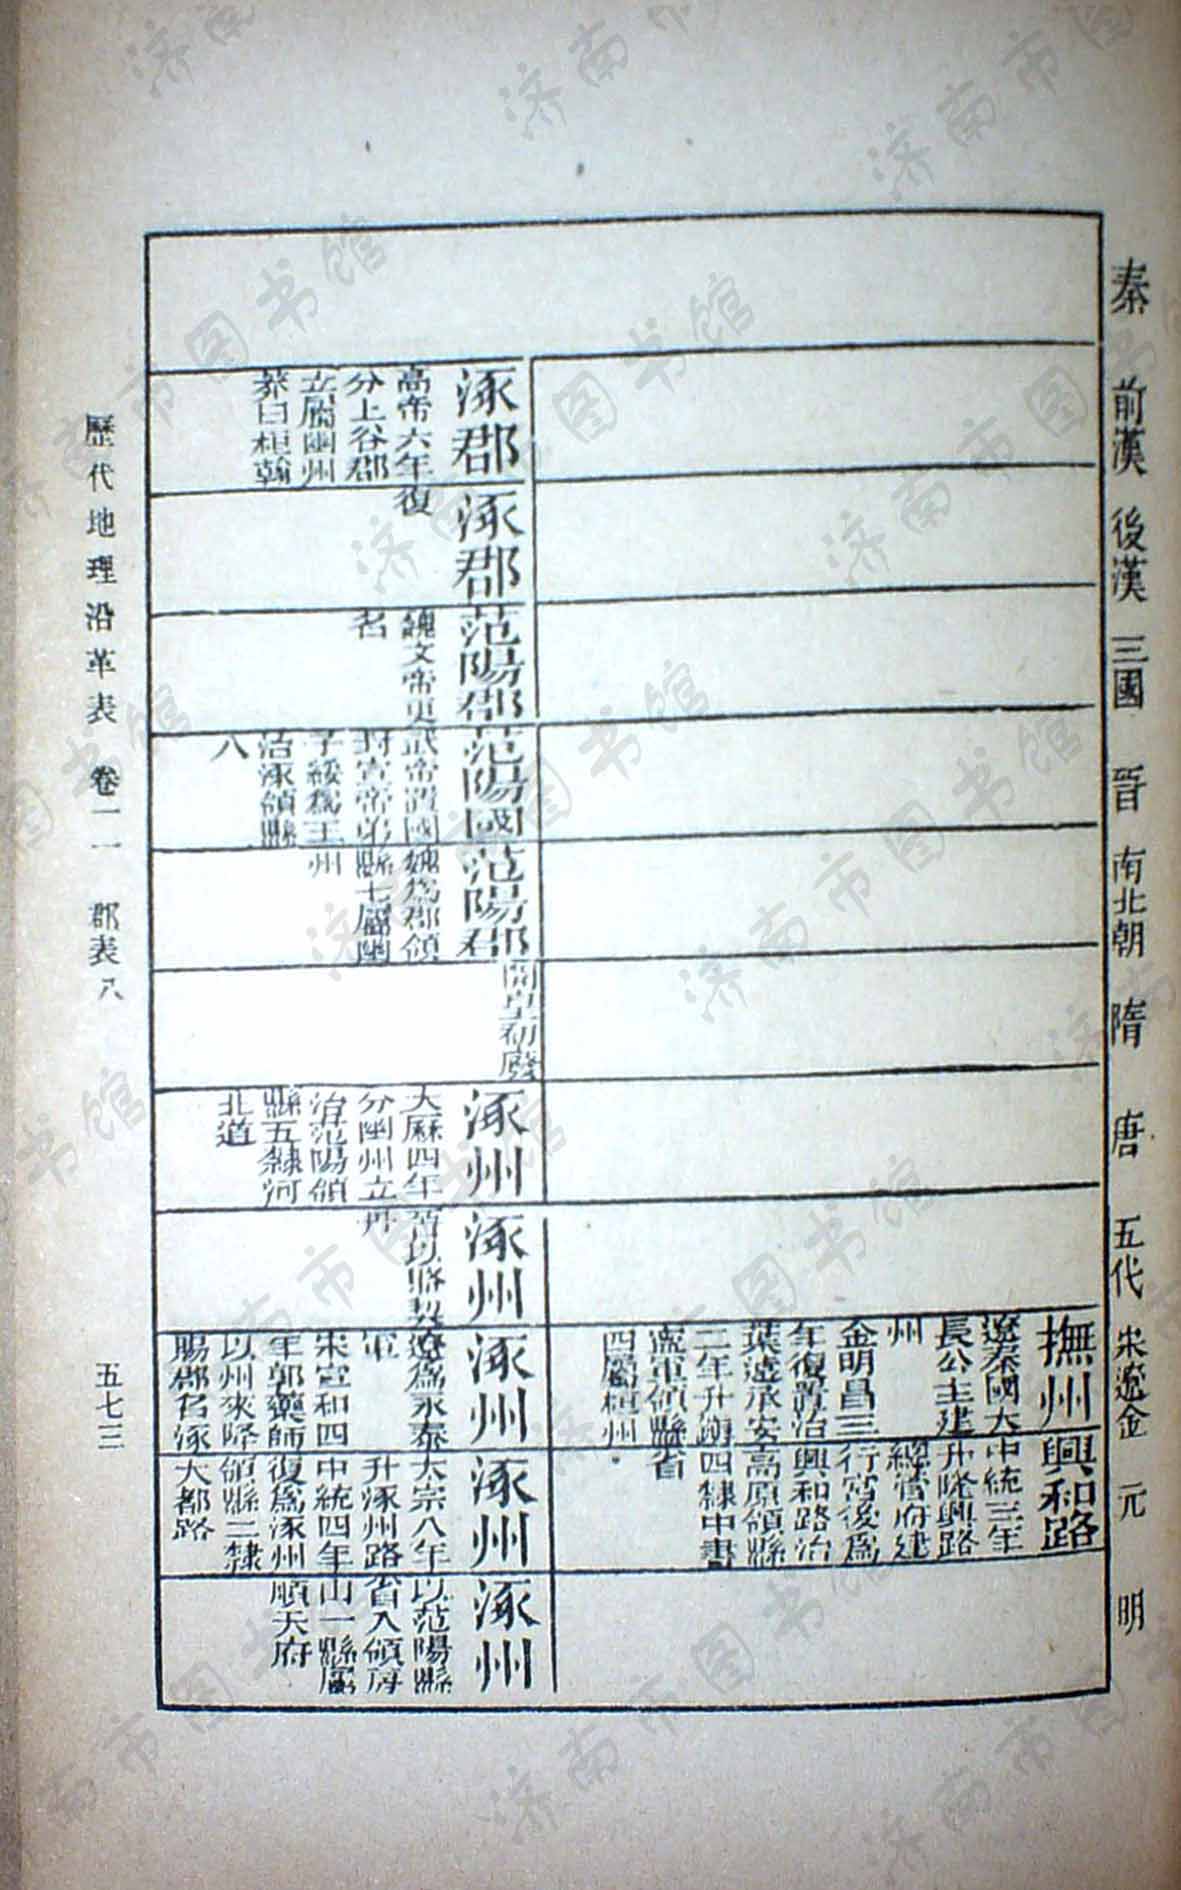 秦 前漢 後漢 三國 晉 南北朝 隋 唐 五代 宋遼金 元 明
撫州
遼秦國大
長公主建
州
金明昌三
年復置治
遠承安
二年升鎮
軍領縣
四屬桓州
興和路
中統三年
升隆興路
總管府建
行宮後爲
興和路治
高原領縣
四隸中書
省
涿郡
高帝六年
分上谷郡
立屬幽州
莽曰桓翰
涿郡
復
范陽郡
魏文帝更
名
范陽國
武帝置國
封宣帝弟
子綏爲王
治涿領縣
八
范陽郡
魏爲郡領
縣七屬幽
州
開皇初廢
涿州
大厤四年
分幽州立
治范陽領
縣五隸河
北道
涿州
晉以賂契
丹
涿州
遼爲永泰
軍
宋宣和四
年郭藥師
以州來降
賜郡名涿
涿州
太宗八年
升涿州路
中統四年
復爲涿州
領縣二隸
大都路
涿州
以范陽縣
省入領房
山一縣屬
順天府
歷代地理沿革表 卷一一 郡表八
五七三